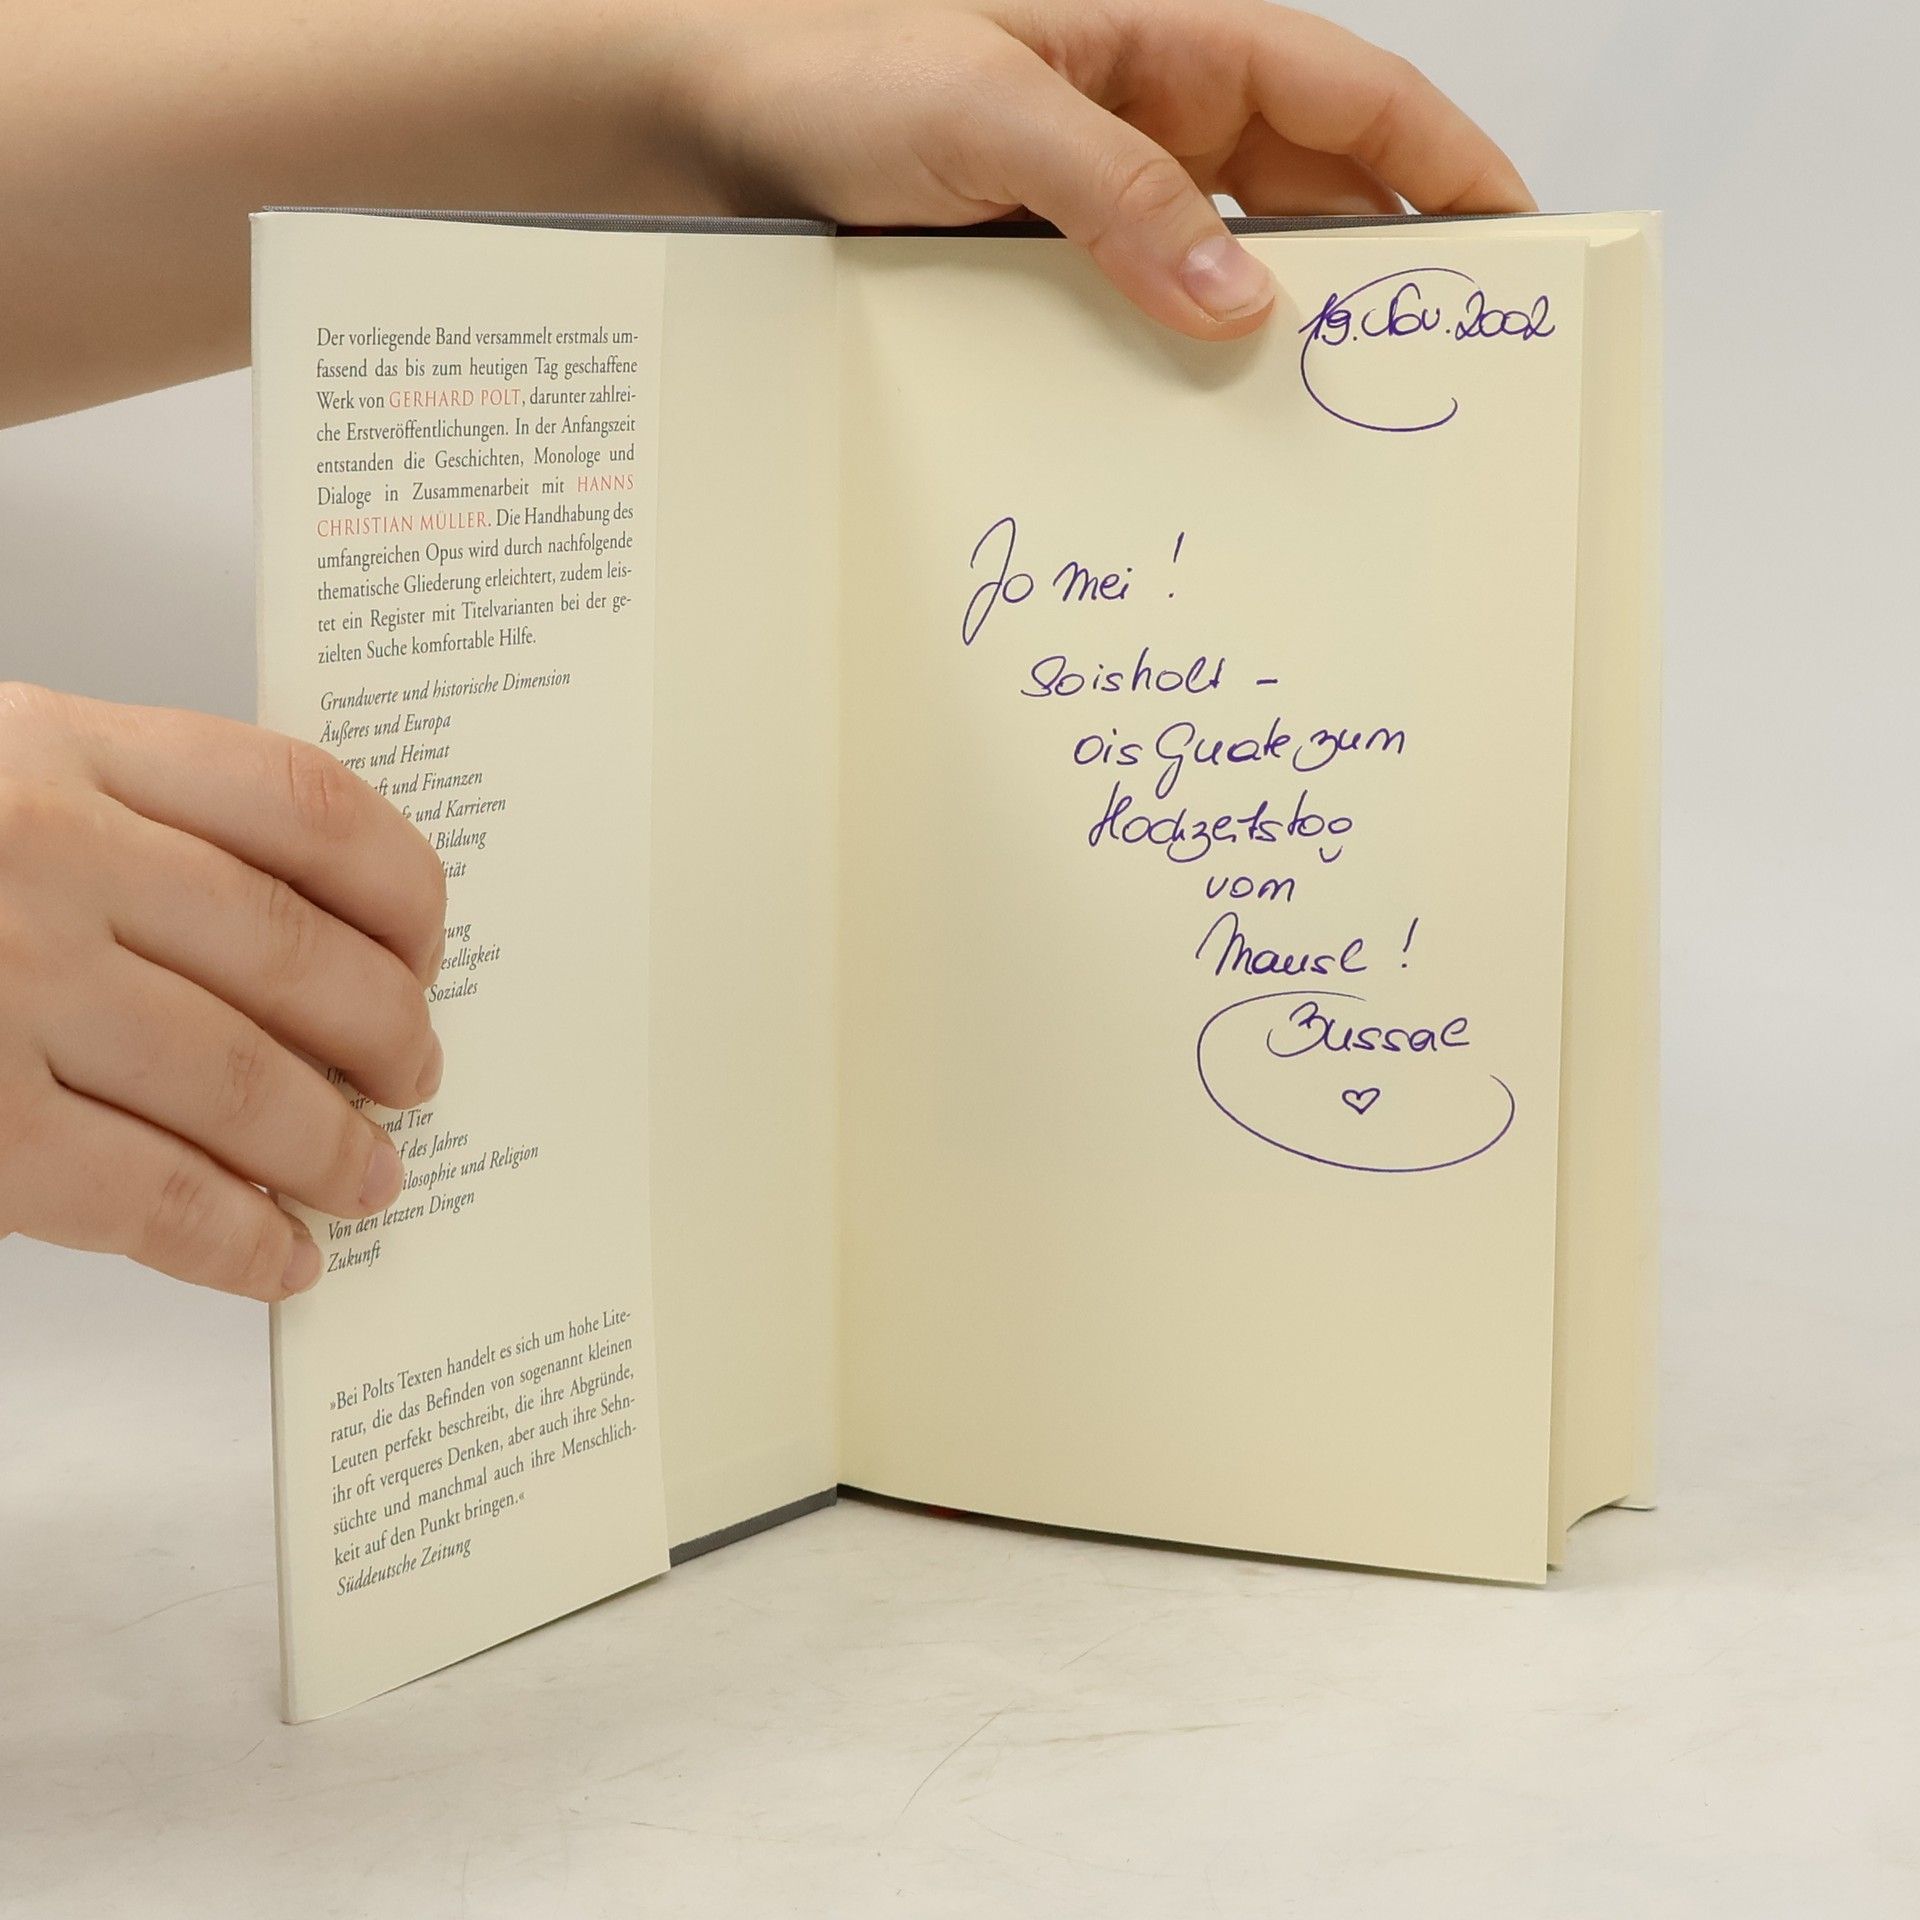 Der vorliegende Band versammelt erstmals um-
fassend das bis zum heutigen Tag geschaffene
Werk von GERHARD POLT, darunter zahlrei-
che Erstveröffentlichungen. In der Anfangszeit
entstanden die Geschichten, Monologe und
Dialoge in Zusammenarbeit mit HANNS
CHRISTIAN MÜLLER. Die Handhabung des
umfangreichen Opus wird durch nachfolgende
thematische Gliederung erleichtert, zudem leis-
tet ein Register mit Titelvarianten bei der ge-
zielten Suche komfortable Hilfe.
Grundwerte und historische Dimension
Äußeres und Europa
und Heimat
und Finanzen
und Karrieren
Bildung
Soziales
und Tier
des Jahres
und Religion
Von den letzten Dingen
Zukunft
»Bei Polts Texten handelt es sich um hohe Lite-
ratur, die das Befinden von sogenannt kleinen
Leuten perfekt beschreibt, die ihre Abgründe,
ihr oft verqueres Denken, aber auch ihre Sehn-
süchte und manchmal auch ihre Menschlich-
keit auf den Punkt bringen.«
Süddeutsche Zeitung
19. Nov. 2002
Jo mei !
Soishold -
ois Guate zum
Hochzeitstog
vom
Mausl !
Bussal